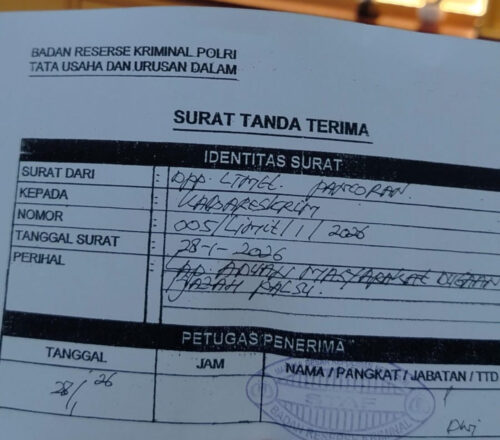 BADAN RESERSE KRIMINAL POLRI
TATA USAHA DAN URUSAN DALAM
SURAT TANDA TERIMA
IDENTITAS SURAT
SURAT DARI : DPP. LIMEL. PANCORAN.
KEPADA : KABARESKRIM
NOMOR : 005/Limit/1/2026
TANGGAL SURAT : 28-1-2026
PERIHAL : AP. ADUAN MASYARAKAT DUGAAN
IJAZAH PALSU.
PETUGAS PENERIMA
TANGGAL JAM NAMA / PANGKAT / JABATAN / TTD
28/1 26
STAF
BADAN RESERSE KRIMINAL
Dwi